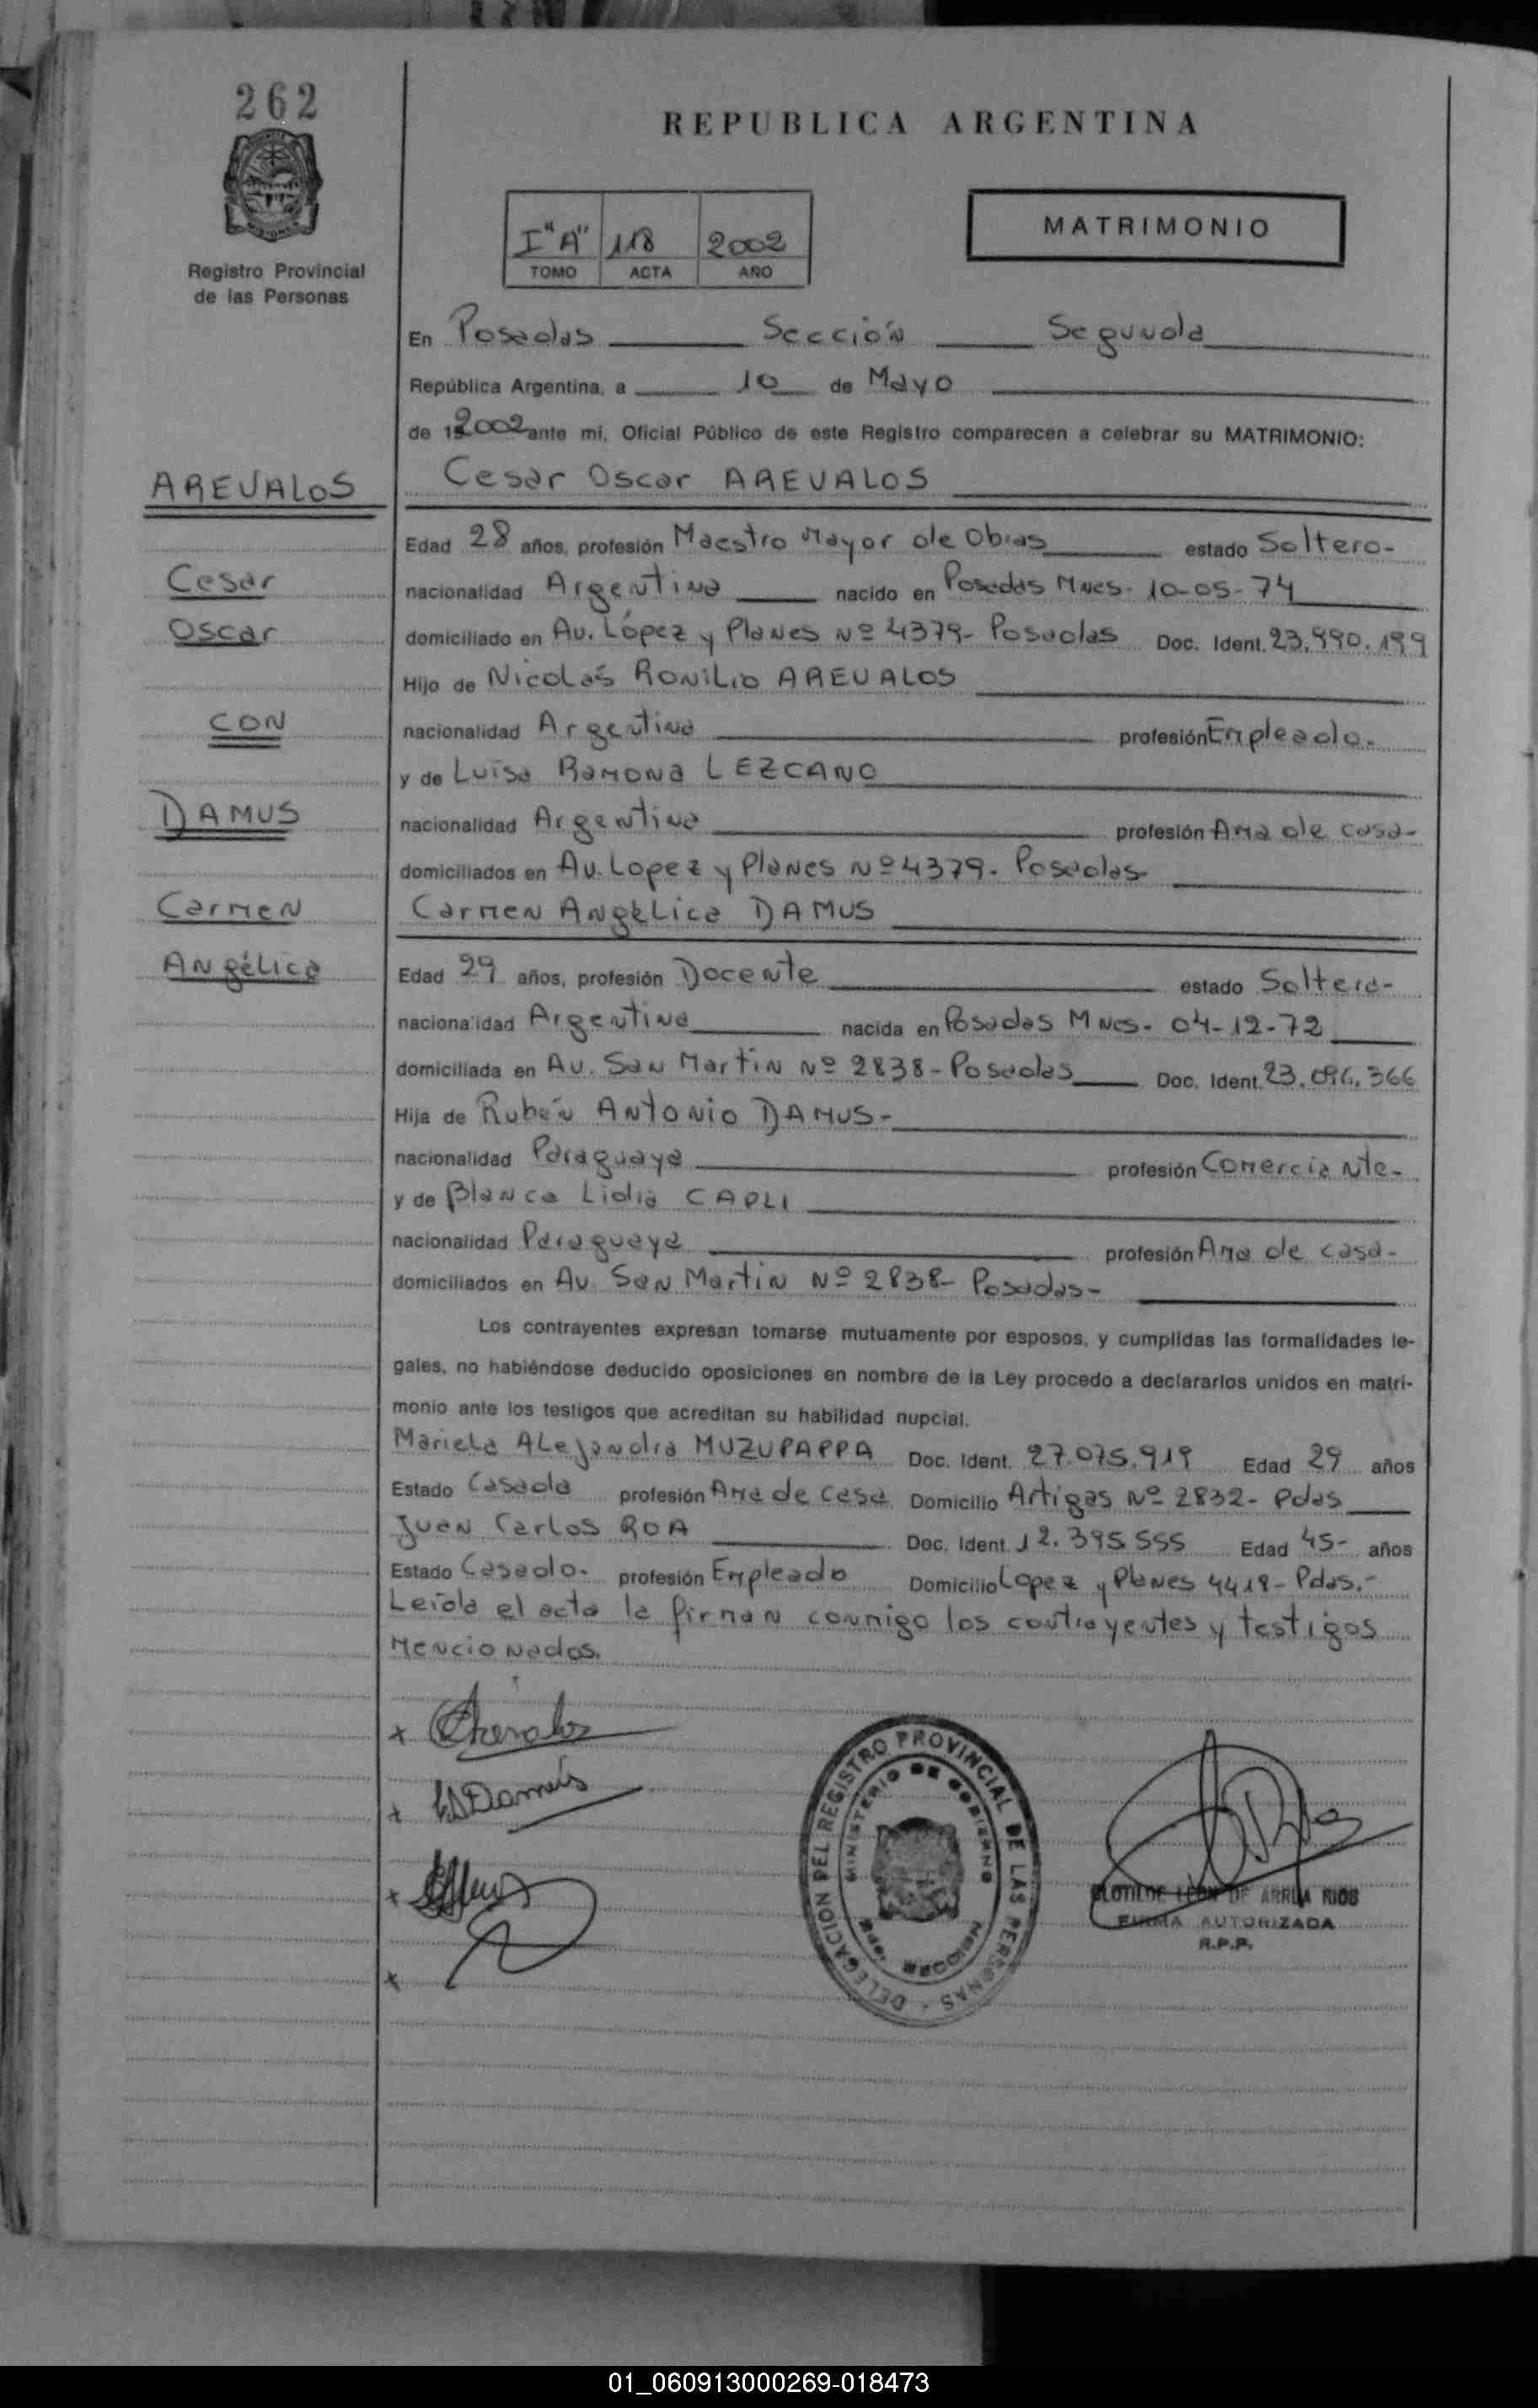 262
REPUBLICA ARGENTINA
I "A" 118 2002
TOMO ACTA AÑO
MATRIMONIO
Registro Provincial
de las Personas
En Posadas Sección Segunda
República Argentina, a 10 de Mayo
de 2002 ante mi, Oficial Público de este Registro comparecen a celebrar su MATRIMONIO:
AREVALOS
Cesar Oscar AREVALOS
Edad 28 años, profesión Maestro Mayor de Obras estado Soltero-
Cesar
nacionalidad Argentina nacido en Posadas Mnes- 10-05-74
Oscar
domiciliado en Av. López y Planes Nº 4379- Posadas Doc. Ident. 23.990.199
Hijo de Nicolás RONILIO AREVALOS
CON
nacionalidad Argentina profesión Empleado.
y de Luisa Ramona LEZCANO
DAMUS
nacionalidad Argentina profesión Ama de casa-
domiciliados en Av. Lopez y Planes Nº 4379- Posadas-
Carmen
Carmen Angélica DAMUS
Angélica
Edad 29 años, profesión Docente estado Soltera-
nacionalidad Argentina nacida en Posadas Mnes- 04-12-72
domiciliada en Av. San Martin Nº 2838- Posadas Doc. Ident. 23.096.366
Hija de Rubén Antonio DAMUS-
nacionalidad Paraguaya profesión Comerciante-
y de Blanca Lidia CAPLI
nacionalidad Paraguaya profesión Ama de casa-
domiciliados en Av. San Martin Nº 2838- Posadas-
Los contrayentes expresan tomarse mutuamente por esposos, y cumplidas las formalidades le-
gales, no habiéndose deducido oposiciones en nombre de la Ley procedo a declararlos unidos en matri-
monio ante los testigos que acreditan su habilidad nupcial.
Mariela Alejandra MUZUPAPPA Doc. Ident. 27.075.919 Edad 29 años
Estado Casada profesión Ama de Casa Domicilio Artigas Nº 2832- Pdas
Juan Carlos ROA Doc. Ident. 12.395.555 Edad 45- años
Estado Casado- profesión Empleado Domicilio Lopez y Planes 4418- Pdas.-
Leída el acta la firman conmigo los contrayentes y testigos
Mencionados.
DELEGACION DEL REGISTRO PROVINCIAL DE LAS PERSONAS
MINISTERIO DE GOBIERNO
CLOTILDE LEON DE ARRUA RIOS
FIRMA AUTORIZADA
R.P.P.
01_060913000269-018473